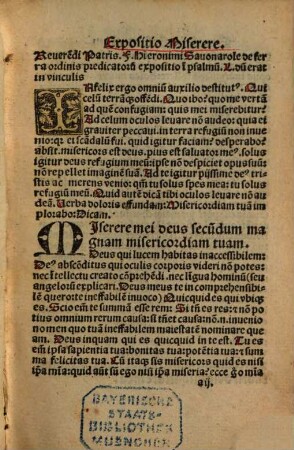 Expositio Miserere.
Reuerēdi Patris. F. Hieronimi Sauonarole de ferra
ra ordinis predicatorū expositio ī psalmū. L. dū erat
in vinculis
INfelix ergo omniū auxilio destitutꝰ. Qui
celū terrāqꝫ offēdi. Quo ibo? quo me vertā
ad quē confugiam? quis mei miserebitur?
Ad celum oculos leuare nō audeo: quia ei
grauiter peccaui. in terra refugiū non inue
nio: qꝛ ei scādalū fui. quid igitur faciam? desperabo?
absit. misericors est deus. pius est saluator meꝰ. solus
igitur deus refugium meū: ipse nō despiciet opus suū:
non repellet imaginē suā. Ad te igitur pijssime deꝰ tris
tis ac merens venio: qm̄ tu solus spes mea: tu solus
refugiū meū. Quid autē dicā tibi oculos leuare nō au
deo. Verba doloris effundam: Misericordiam tuā im
plorabo: Dicam.
MIserere mei deus secūdum ma
gnam misericordiam tuam.
Deus qui lucem habitas inaccessibilem:
Deꝰ abscōditus qui oculis corporis videri nō potes:
nec ītellectu creato cōprehēdi. nec lingua hominū seu
angelorū explicari. Deus meus te incomprehensibi
lē querote ineffabilē inuoco) Quicquid es qui vbiqꝫ
es. Scio em̄ te summā esse rem: Si tñ es res: ⁊ nō po
tius omnium rerum causa: si tñ et causa: nō ñ. inuenio
nomen quo tuā ineffabilem maiestatē nominare que
am. Deus inquam qui es quicquid in te est. Tu es
em̄ ipsa sapientia tua: bonitas tua: potētia tua: ⁊ sum
ma felicitas tua. Cū itaqꝫ sis misericors quid es nisi
ipsa mīa: quid aūt sū ego nisi ipa miseria? ecce ḡ o mīa
aij.
BAYERISCHE
STAATS-
BIBLIOTHEK
MUENCHEN